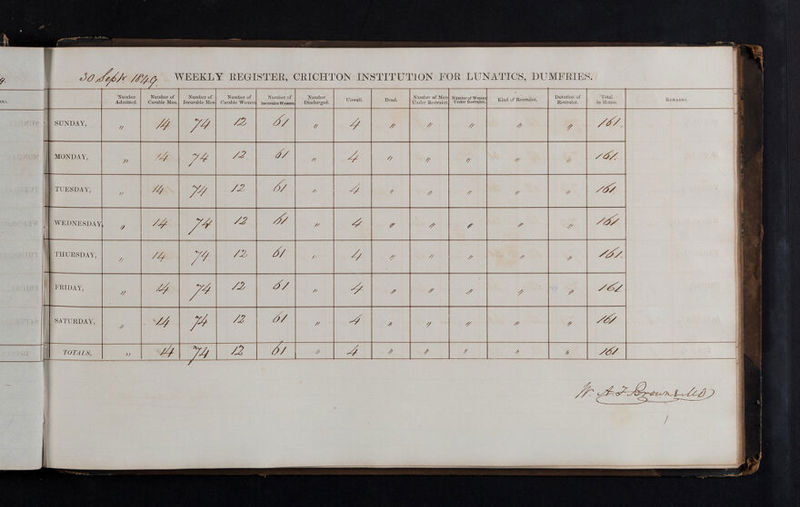 30 Septr 1849 WEEKLY REGISTER, CRICHTON INSTITUTION FOR LUNATICS, DUMFRIES.
Number Admitted. Number of Curable Men. Number of Incurable Men. Number of Curable Women. Number of Incurable Women. Number Discharged. Unwell. Dead. Number of Men Under Restraint. Number of Women Under Restraint. Kind of Restraint. Duration of Restraint. Total in House. REMARKS.
SUNDAY, " 14 74 12 61 " 4 " " " " " 161.
MONDAY, " 14 74 12 61 " 4 " " " " " 161.
TUESDAY, " 14 74 12 61 " 4 " " " " " 161
WEDNESDAY, " 14 74 12 61 " 4 " " " " " 161
THURSDAY, " 14 74 12 61 " 4 " " " " " 161.
FRIDAY, " 14 74 12 61 " 4 " " " " " 161
SATURDAY, " 14 74 12 61 " 4 " " " " " 161
TOTALS, " 14 74 12 61 " 4 " " " " " 161
W. A. F. Browne MD